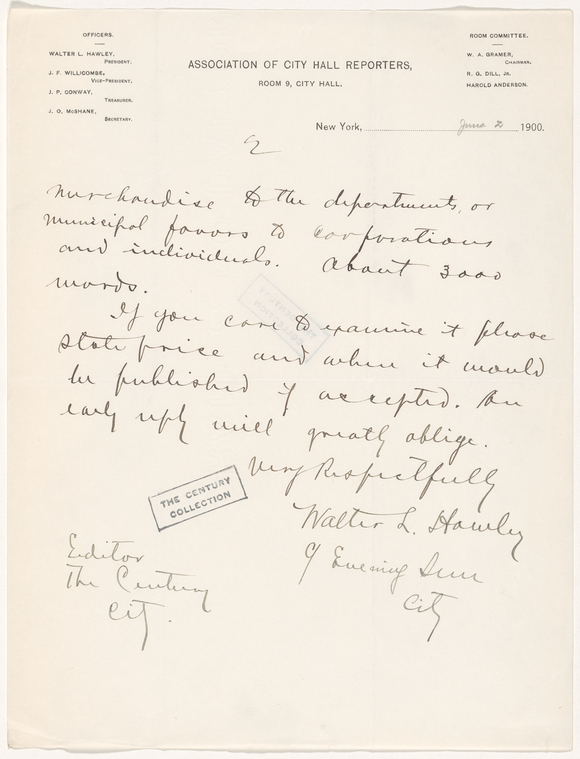 OFFICERS.
WALTER L. HAWLEY,
PRESIDENT.
J. F. WILLICOMBE,
VICE-PRESIDENT.
J. P. CONWAY,
TREASURER.
J. O. McSHANE,
SECRETARY.
ASSOCIATION OF CITY HALL REPORTERS,
ROOM 9, CITY HALL.
ROOM COMMITTEE.
W. A. GRAMER,
CHAIRMAN.
R. G. DILL, JR.
HAROLD ANDERSON.
New York, June 2 1900.
2
merchandise to the departments, or
municipal favors to corporations
and individuals. About 3000
words.
If you care to examine it please
state price and when it would
be published if accepted. An
early reply will greatly oblige.
Very Respectfully
Walter L. Hawley
THE CENTURY
COLLECTION
Editor
The Century
City.
Evening Sun
City